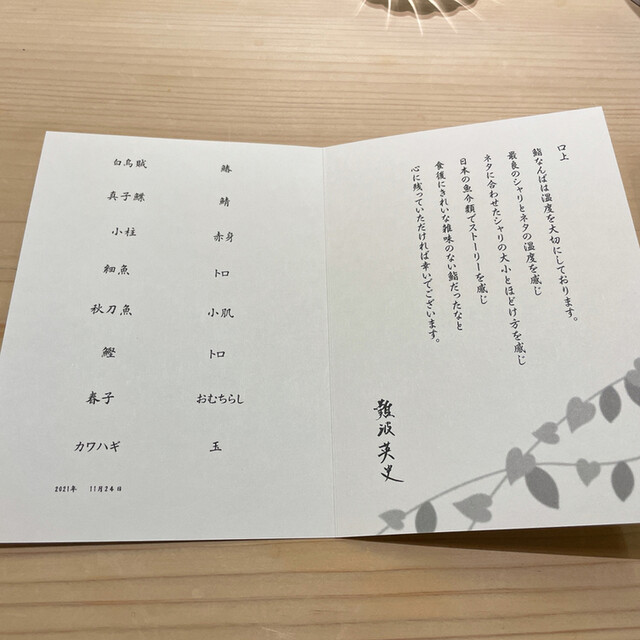 口上
鮨なんばは温度を大切にしております。
最良のシャリとネタの温度を感じ
ネタに合わせたシャリの大小とほどけ方を感じ
日本の魚介類でストーリーを感じ
食後にきれいな雑味のない鮨だったなと
心に残っていただければ幸いでございます。
難波英史
白烏賊
真子鰈
小柱
細魚
秋刀魚
鰹
春子
カワハギ
鰆
鯖
赤身
トロ
小肌
トロ
おむちらし
玉
2021年 11月24日